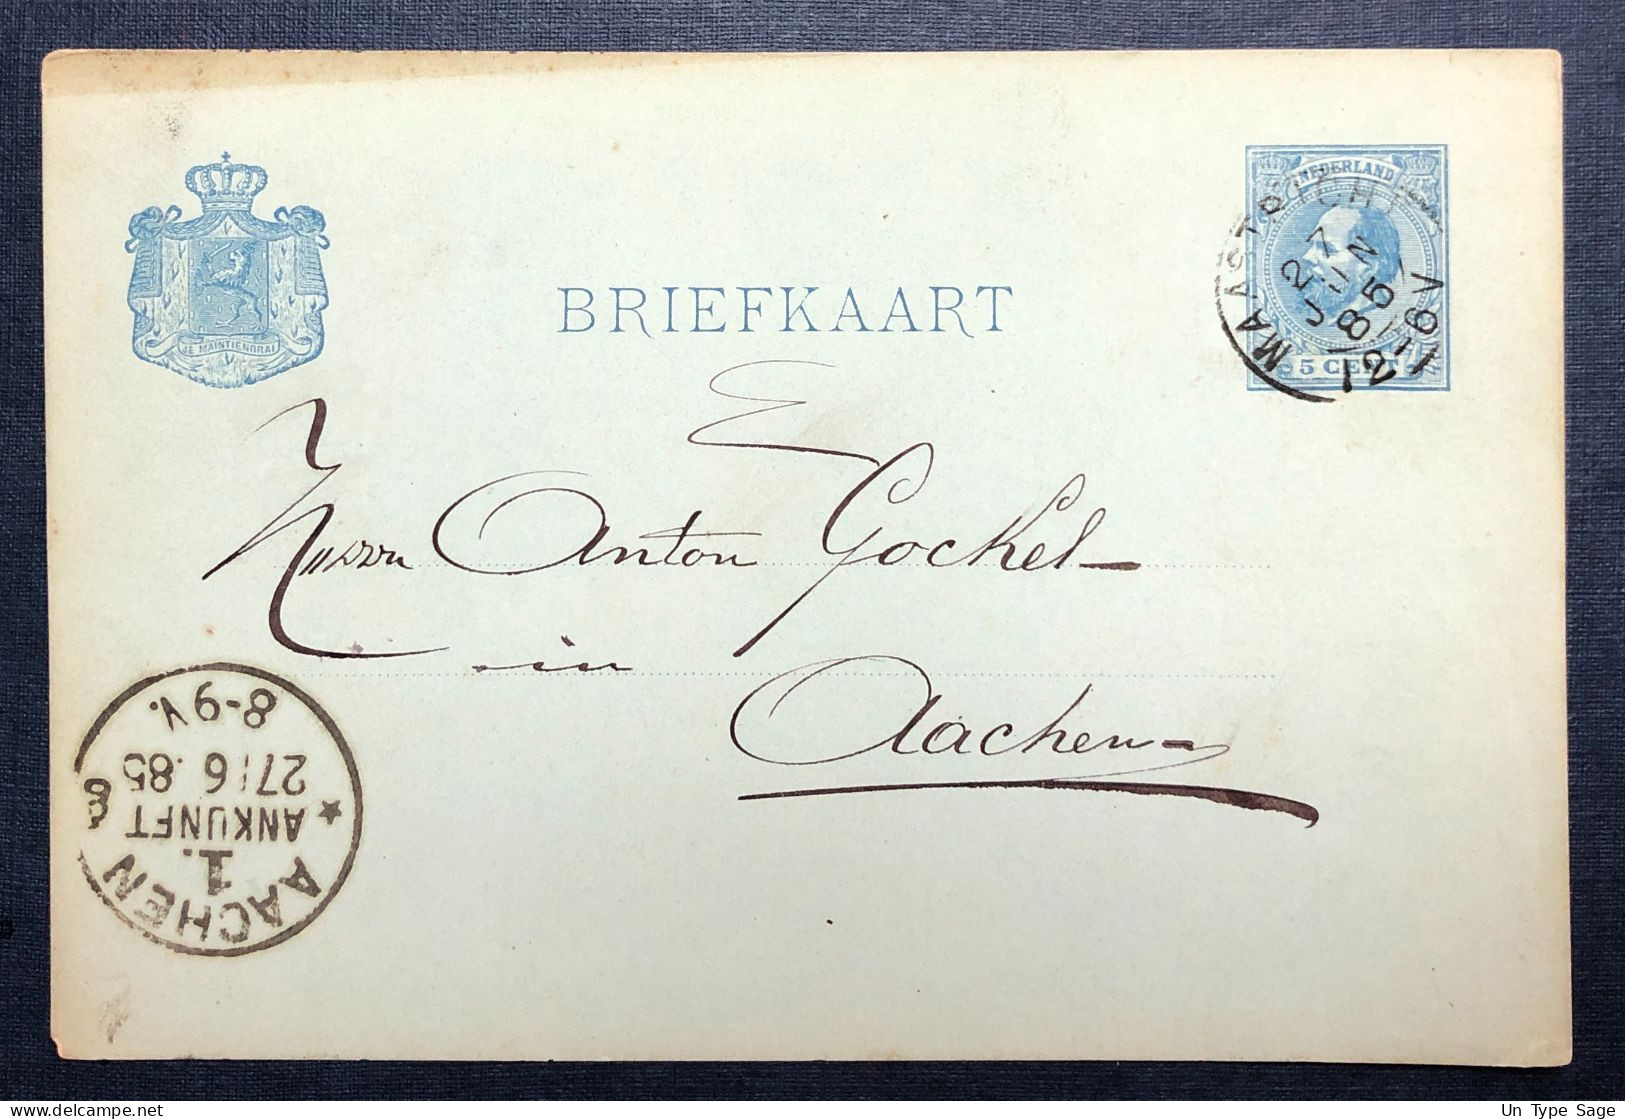 NEDERLAND
5 CENT
MAASTRICHT
27
JUN
85
12-6V
JE MAINTIENDRAI
BRIEFKAART
Herrn Anton Gockel
in
Aachen
AACHEN
1.
ANKUNFT
27/6.85
8-9V.
Un Type Sage